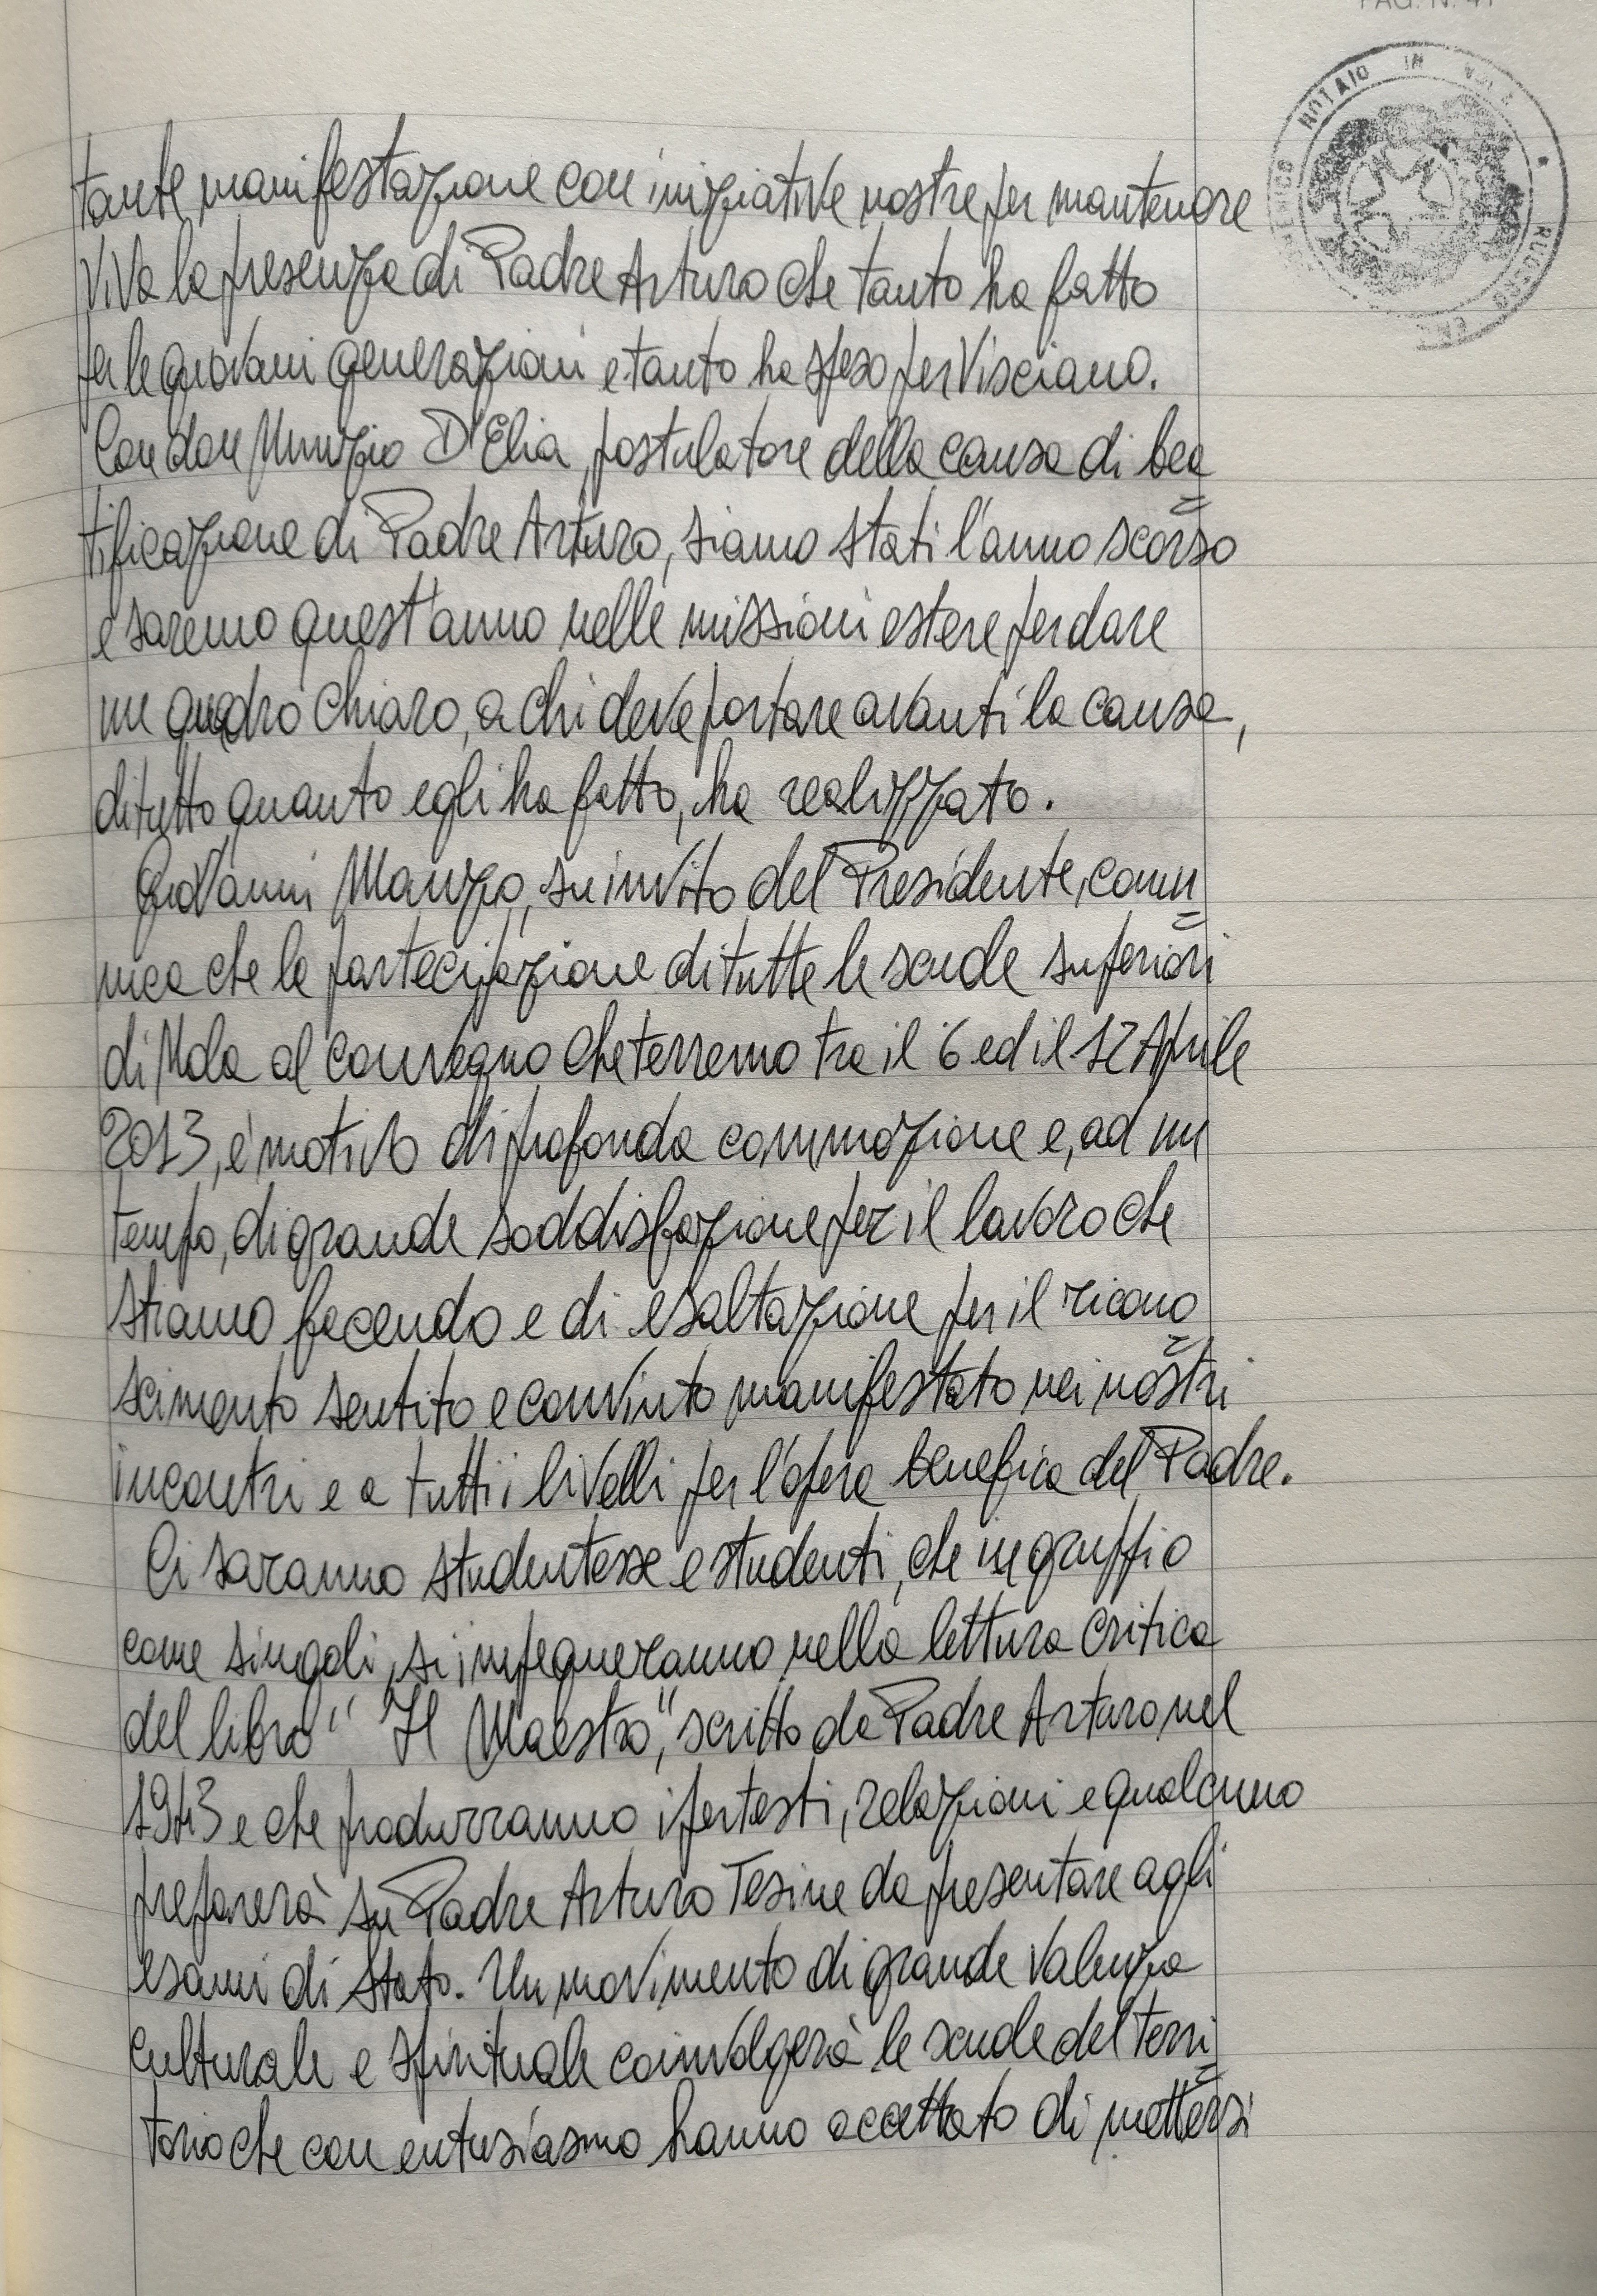 PAG. N. 41
NOTAIO IN
tante manifestazione con iniziative nostre per mantenere
viva la presenza di Padre Arturo che tanto ha fatto
per le giovani generazioni e tanto ha speso per Visciano.
Con don Nunzio D'Elia, postulatore della causa di bea
tificazione di Padre Arturo, siamo stati l'anno scorso
e saremo quest'anno nelle missioni estere per dare
un quadro chiaro, a chi deve portare avanti la causa,
di tutto quanto egli ha fatto, ha realizzato.
Giovanni Manzo, su invito del Presidente, comu
nica che la partecipazione di tutte le scuole superiori
di Nola al convegno che terremo tra il 6 ed il 12 Aprile
2013, è motivo di profonda commozione e, ad un
tempo, di grande soddisfazione per il lavoro che
stiamo facendo e di esaltazione per il ricono
scimento sentito e convinto manifestato nei nostri
incontri e a tutti i livelli per l'opera benefica del Padre.
Ci saranno studentesse e studenti, che in gruppi o
come singoli, si impegneranno nella lettura critica
del libro "Il Maestro", scritto da Padre Arturo nel
1943 e che produrranno ipertesti, relazioni e qualcuno
preparerà su Padre Arturo Tesine da presentare agli
esami di Stato. Un movimento di grande valenza
culturale e spirituale coinvolgerà le scuole del terri
torio che con entusiasmo hanno accettato di mettersi